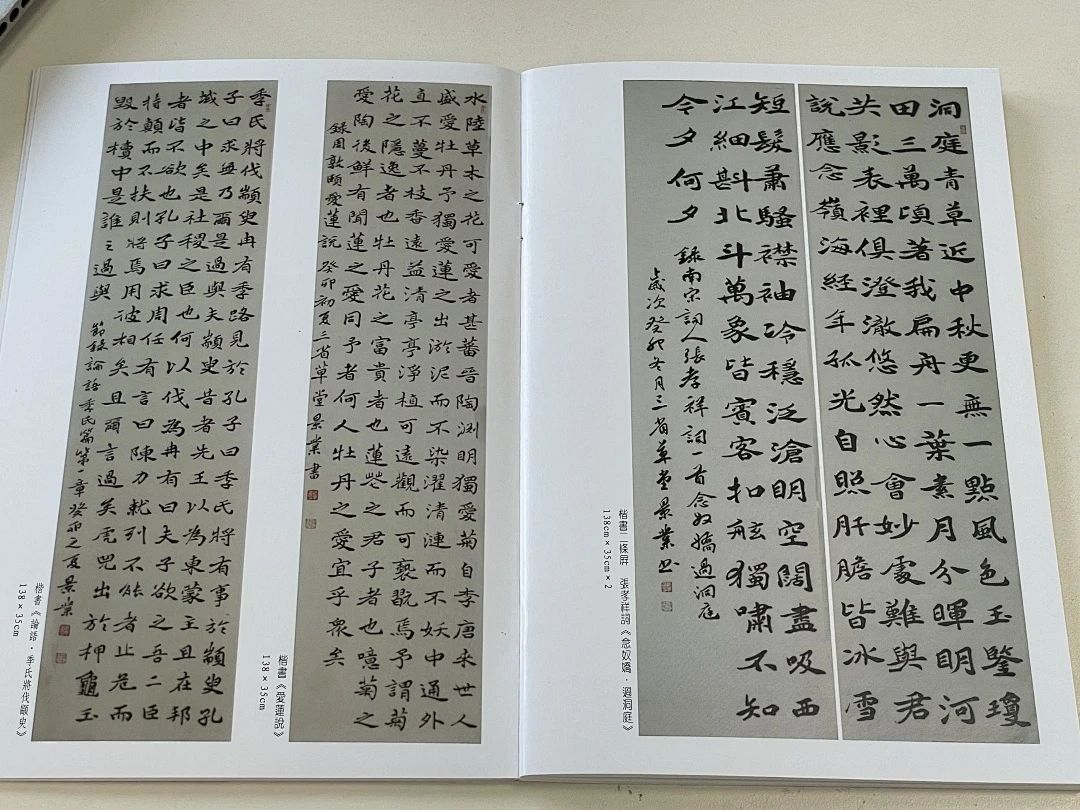 洞庭青草近中秋更無一點風色玉鑒瓊
田三萬頃著我扁舟一葉素月分暉明河
共影表裡俱澄澈悠然心會妙處難與君
說應念嶺海經年孤光自照肝膽皆冰雪
短髮蕭騷襟袖冷穩泛滄明空闊盡吸西
江細斟北斗萬象皆賓客扣舷獨嘯不知
今夕何夕
錄南宋詞人張孝祥詞一首念奴嬌過洞庭
歲次癸卯冬月三省草堂景業書
楷書二條屏 張孝祥詞《念奴嬌·過洞庭》
138cm×35cm×2
水陸草木之花可愛者甚蕃晉陶渊明獨愛菊自李唐来世人
盛愛牡丹予獨愛蓮之出淤泥而不染濯清漣而不妖中通外
直不蔓不枝香遠益清亭亭淨植可遠觀而可褻翫焉予謂菊
花之隱逸者也牡丹花之富貴者也蓮花之君子者也噫菊之
愛陶後鮮有聞蓮之愛同予者何人牡丹之愛宜乎衆矣
錄周敦頤愛蓮說 癸卯初夏三省草堂景業書
楷書《愛蓮說》
138×35cm
季氏將伐顓臾冉有季路見於孔子曰季氏將有事於顓臾孔
子曰求無乃爾是過與夫顓臾昔者先王以為東蒙主且在邦
域之中矣是社稷之臣也何以伐為冉有曰夫子欲之吾二臣
者皆不欲也孔子曰求周任有言曰陳力就列不能者止危而
持顛而不扶則將焉用彼相矣且爾言過矣虎兕出於柙龜玉
毀於櫝中是誰之過與
節錄論語季氏篇第一章癸卯之夏景業
楷書《論語·季氏將伐顓臾》
138×35cm